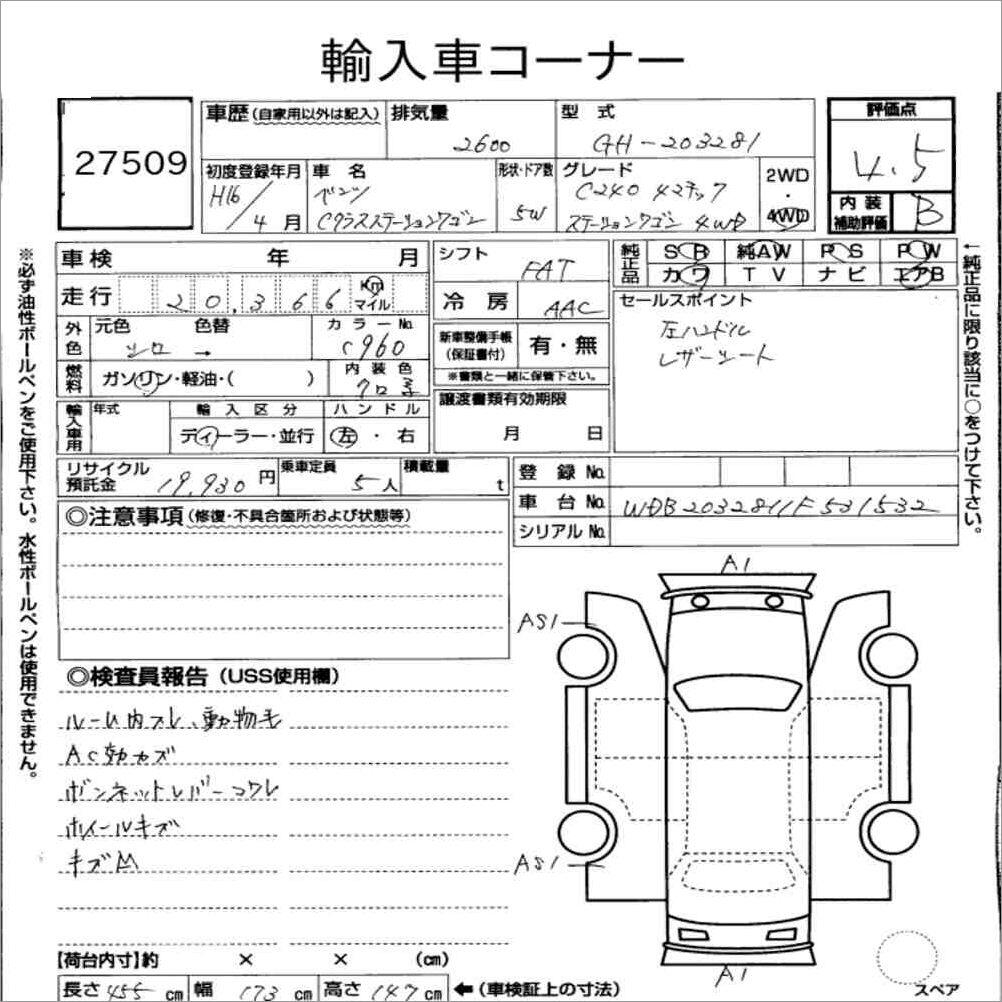 輸入車コーナー
27509
車歴(自家用以外は記入)
排気量
2600
型 式
GH-203281
評価点
4.5
内装
補助評価
B
初度登録年月
H16/4月
車 名
ベンツ
Cクラスステーションワゴン
形状・ドア数
5W
グレード
C240 4マチック
ステーションワゴン 4WD
2WD
・
4WD
※必ず油性ボールペンをご使用下さい。水性ボールペンは使用できません。
車検 年 月
走行 20,366 Km マイル
外色
元色 色替
シロ →
カラーNo.
C960
燃料
ガソリン・軽油・( )
内装色
クロ系
輸入車用
年式
輸入区分
ディーラー・並行
ハンドル
左・右
シフト
FAT
冷房
AAC
新車整備手帳
(保証書付)
有・無
※書類と一緒に保管下さい。
譲渡書類有効期限
月 日
純正品
SB 純AW PS PW
カワ TV ナビ エアB
セールスポイント
左ハンドル
レザーシート
←純正品に限り該当に○をつけて下さい。
リサイクル
預託金
19,930円
乗車定員
5人
積載量
t
登録No.
車台No.
WDB2032811F531532
シリアルNo.
◎注意事項(修復・不具合箇所および状態等)
◎検査員報告(USS使用欄)
ルーム内スレ、動物毛
AC効カズ
ボンネットレバーコワレ
ホイールキズ
キズ凹
A1
AS1
AS1
A1
スペア
【荷台内寸】約 × × (cm)
長さ 455 cm
幅 173 cm
高さ 147 cm
←(車検証上の寸法)